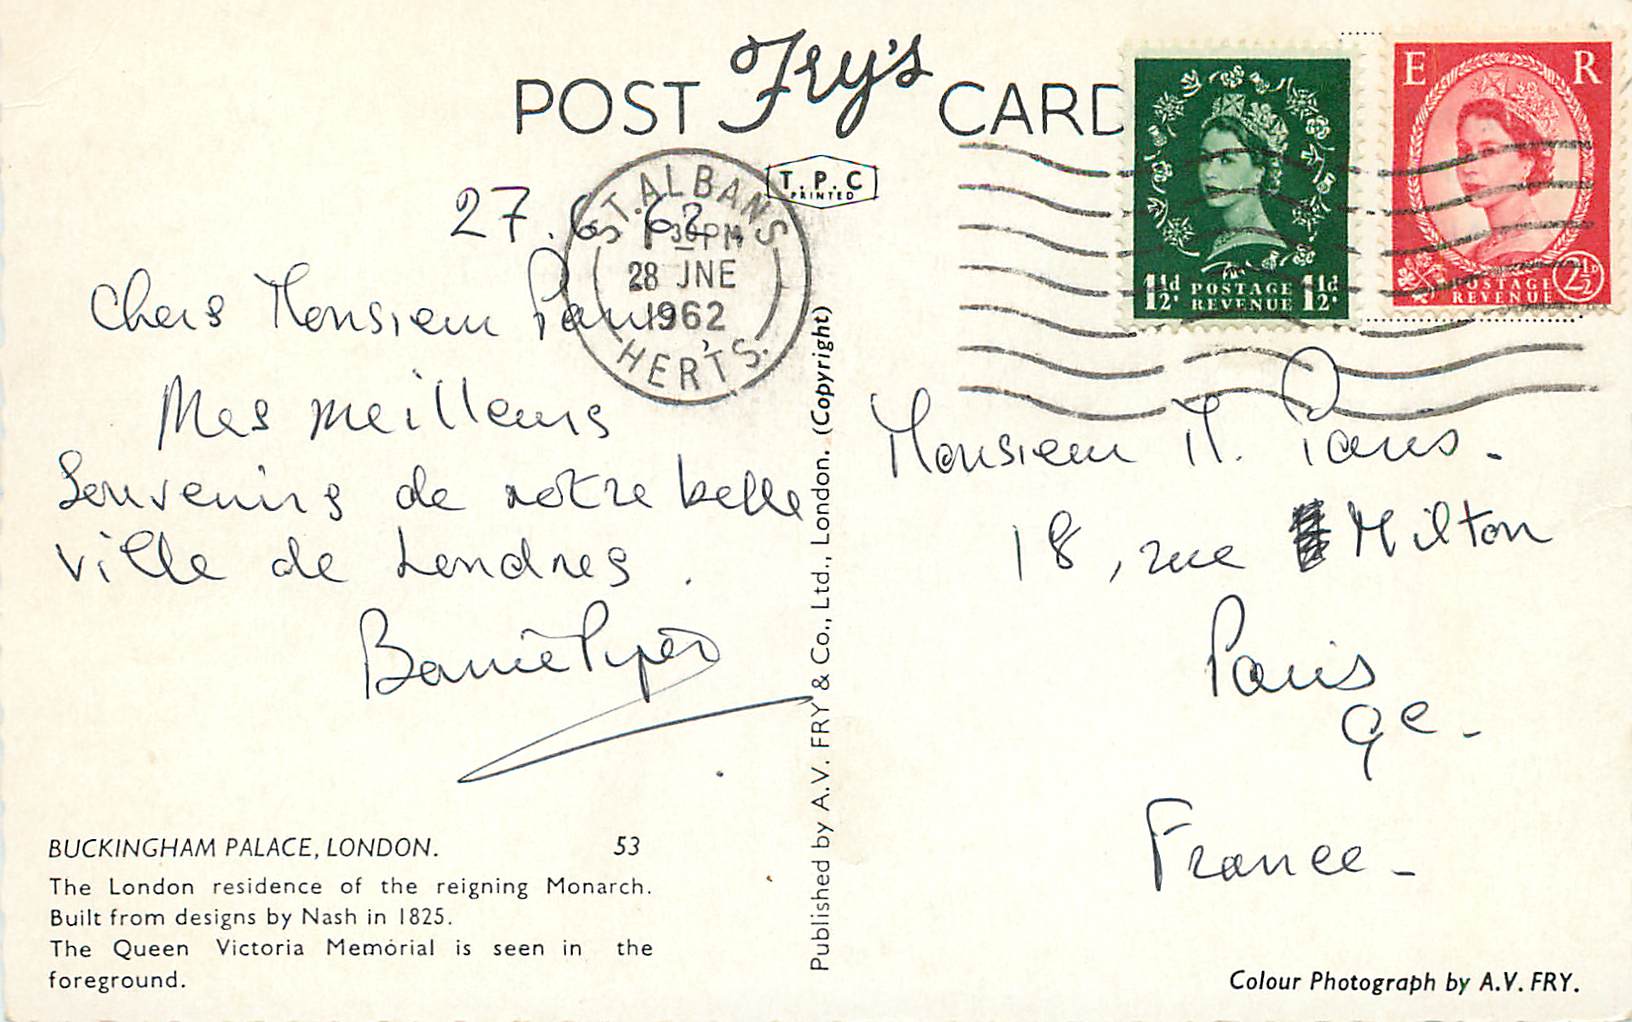 POST Fry's CARD
T.P.C
PRINTED
E R
1½d POSTAGE REVENUE 1½d
POSTAGE REVENUE 2½d
ST. ALBANS
30PM
28 JNE
1962
HERTS.
27.6.62
Chers Monsieur
Mes meilleurs
Souvenirs de notre belle
ville de Londres.
Monsieur M.
18, rue Milton
Paris
9e.
France
BUCKINGHAM PALACE, LONDON. 53
The London residence of the reigning Monarch.
Built from designs by Nash in 1825.
The Queen Victoria Memorial is seen in the
foreground.
Published by A.V. FRY & Co., Ltd., London. (Copyright)
Colour Photograph by A.V. FRY.